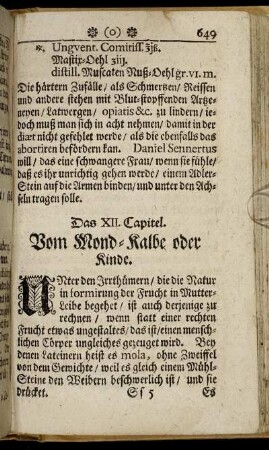 (o) 649
℞. Ungvent. Comitiss. ℥jß.
Mastix-Oehl ʒiij.
distill. Muscaten Nuß-Oehl gr. vi. m.
Die härtern Zufälle/ als Schmertzen/ Reissen
und andere stehen mit Blut-stopffenden Artze-
neyen/ Latwergen/ opiatis &c. zu lindern/ ie-
doch muß man sich in acht nehmen/ damit in der
diæt nicht gefehlet werde/ als die ebenfalls das
abortiren befördern kan. Daniel Sennertus
will/ das eine schwangere Frau/ wenn sie fühle/
daß es ihr unrichtig gehen werde/ einem Adler-
Stein auf die Armen binden/ und unter den Ach-
seln tragen solle.
Das XII. Capitel.
Vom Mond-Kalbe oder
Kinde.
UNter den Irrthümern/ die die Natur
in formirung der Frucht in Mutter-
Leibe begehet/ ist auch derjenige zu
rechnen/ wenn statt einer rechten
Frucht etwas ungestaltes/ das ist/ einen mensch-
lichen Cörper ungleiches gezeuget wird. Bey
denen Lateinern heist es mola, ohne Zweiffel
von dem Gewichte/ weil es gleich einem Mühl-
Steine den Weibern beschwerlich ist/ und sie
drücket. Ss 5 Es